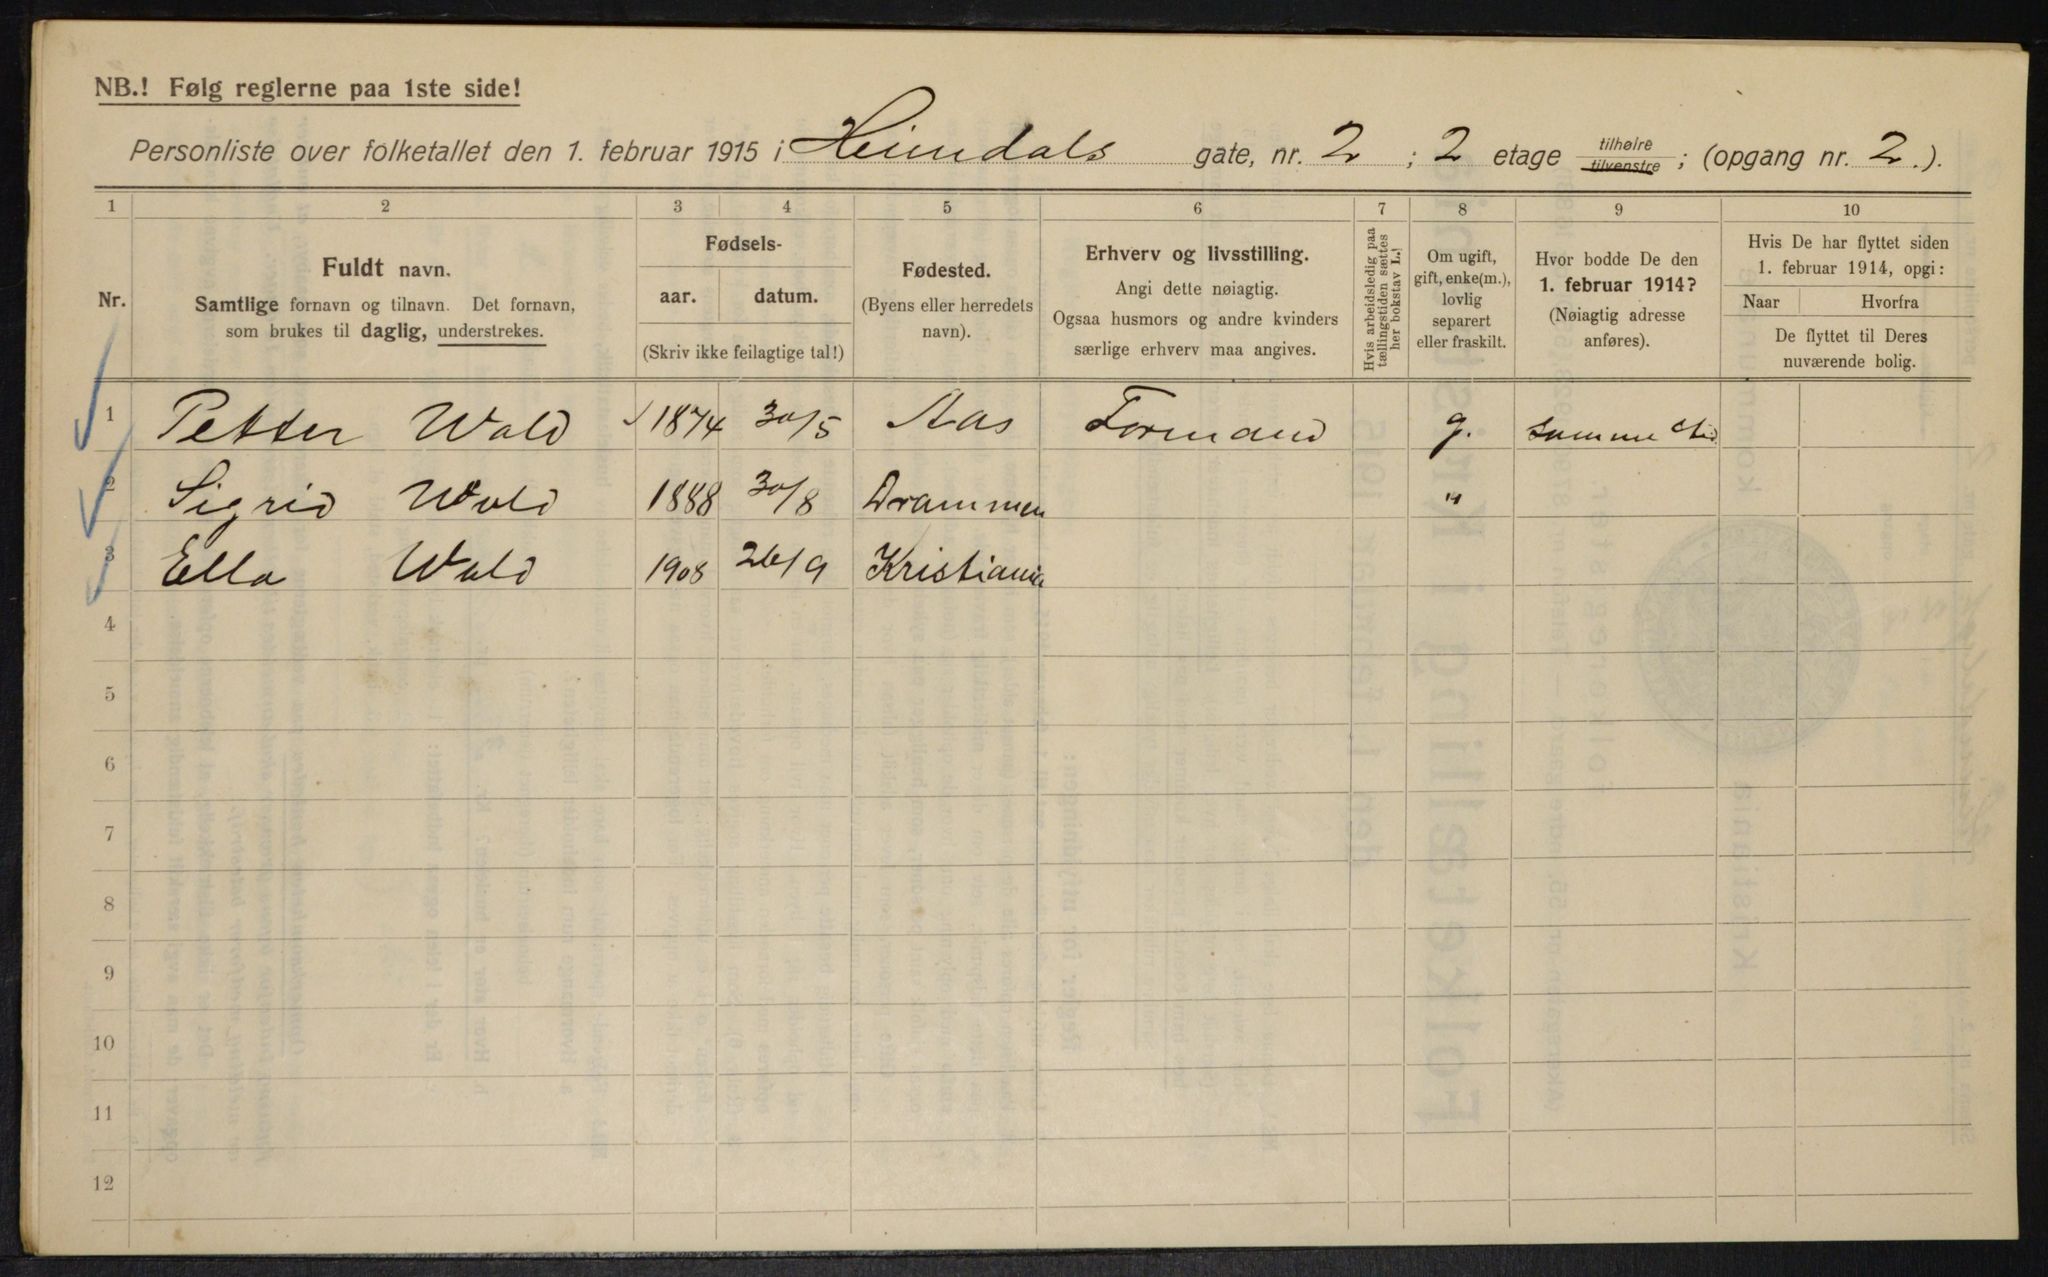 NB.! Følg reglerne paa 1ste side!
Personliste over folketallet den 1. februar 1915 i Heimdals gate, nr. 2 ; 2 etage tilhøire tilvenstre ; (opgang nr. 2.).
1 2 3 4 5 6 7 8 9 10
Nr.
Fuldt navn.
Samtlige fornavn og tilnavn. Det fornavn,
som brukes til daglig, understrekes.
Fødsels-
aar. datum.
(Skriv ikke feilagtige tal!)
Fødested.
(Byens eller herredets
navn).
Erhverv og livsstilling.
Angi dette nøiagtig.
Ogsaa husmors og andre kvinders
særlige erhverv maa angives.
Hvis arbeidsledig paa
tællingstiden sættes
her bokstav L.!
Om ugift,
gift, enke(m.),
lovlig
separert
eller fraskilt.
Hvor bodde De den
1. februar 1914?
(Nøiagtig adresse
anføres).
Hvis De har flyttet siden
1. februar 1914, opgi:
Naar Hvorfra
De flyttet til Deres
nuværende bolig.
1 Petter Wold 1874 30/5 Aas Formand g. samme sted
2 Sigrid Wold 1888 30/8 Drammen "
3 Ella Wold 1908 26/9 Kristiania
4
5
6
7
8
9
10
11
12